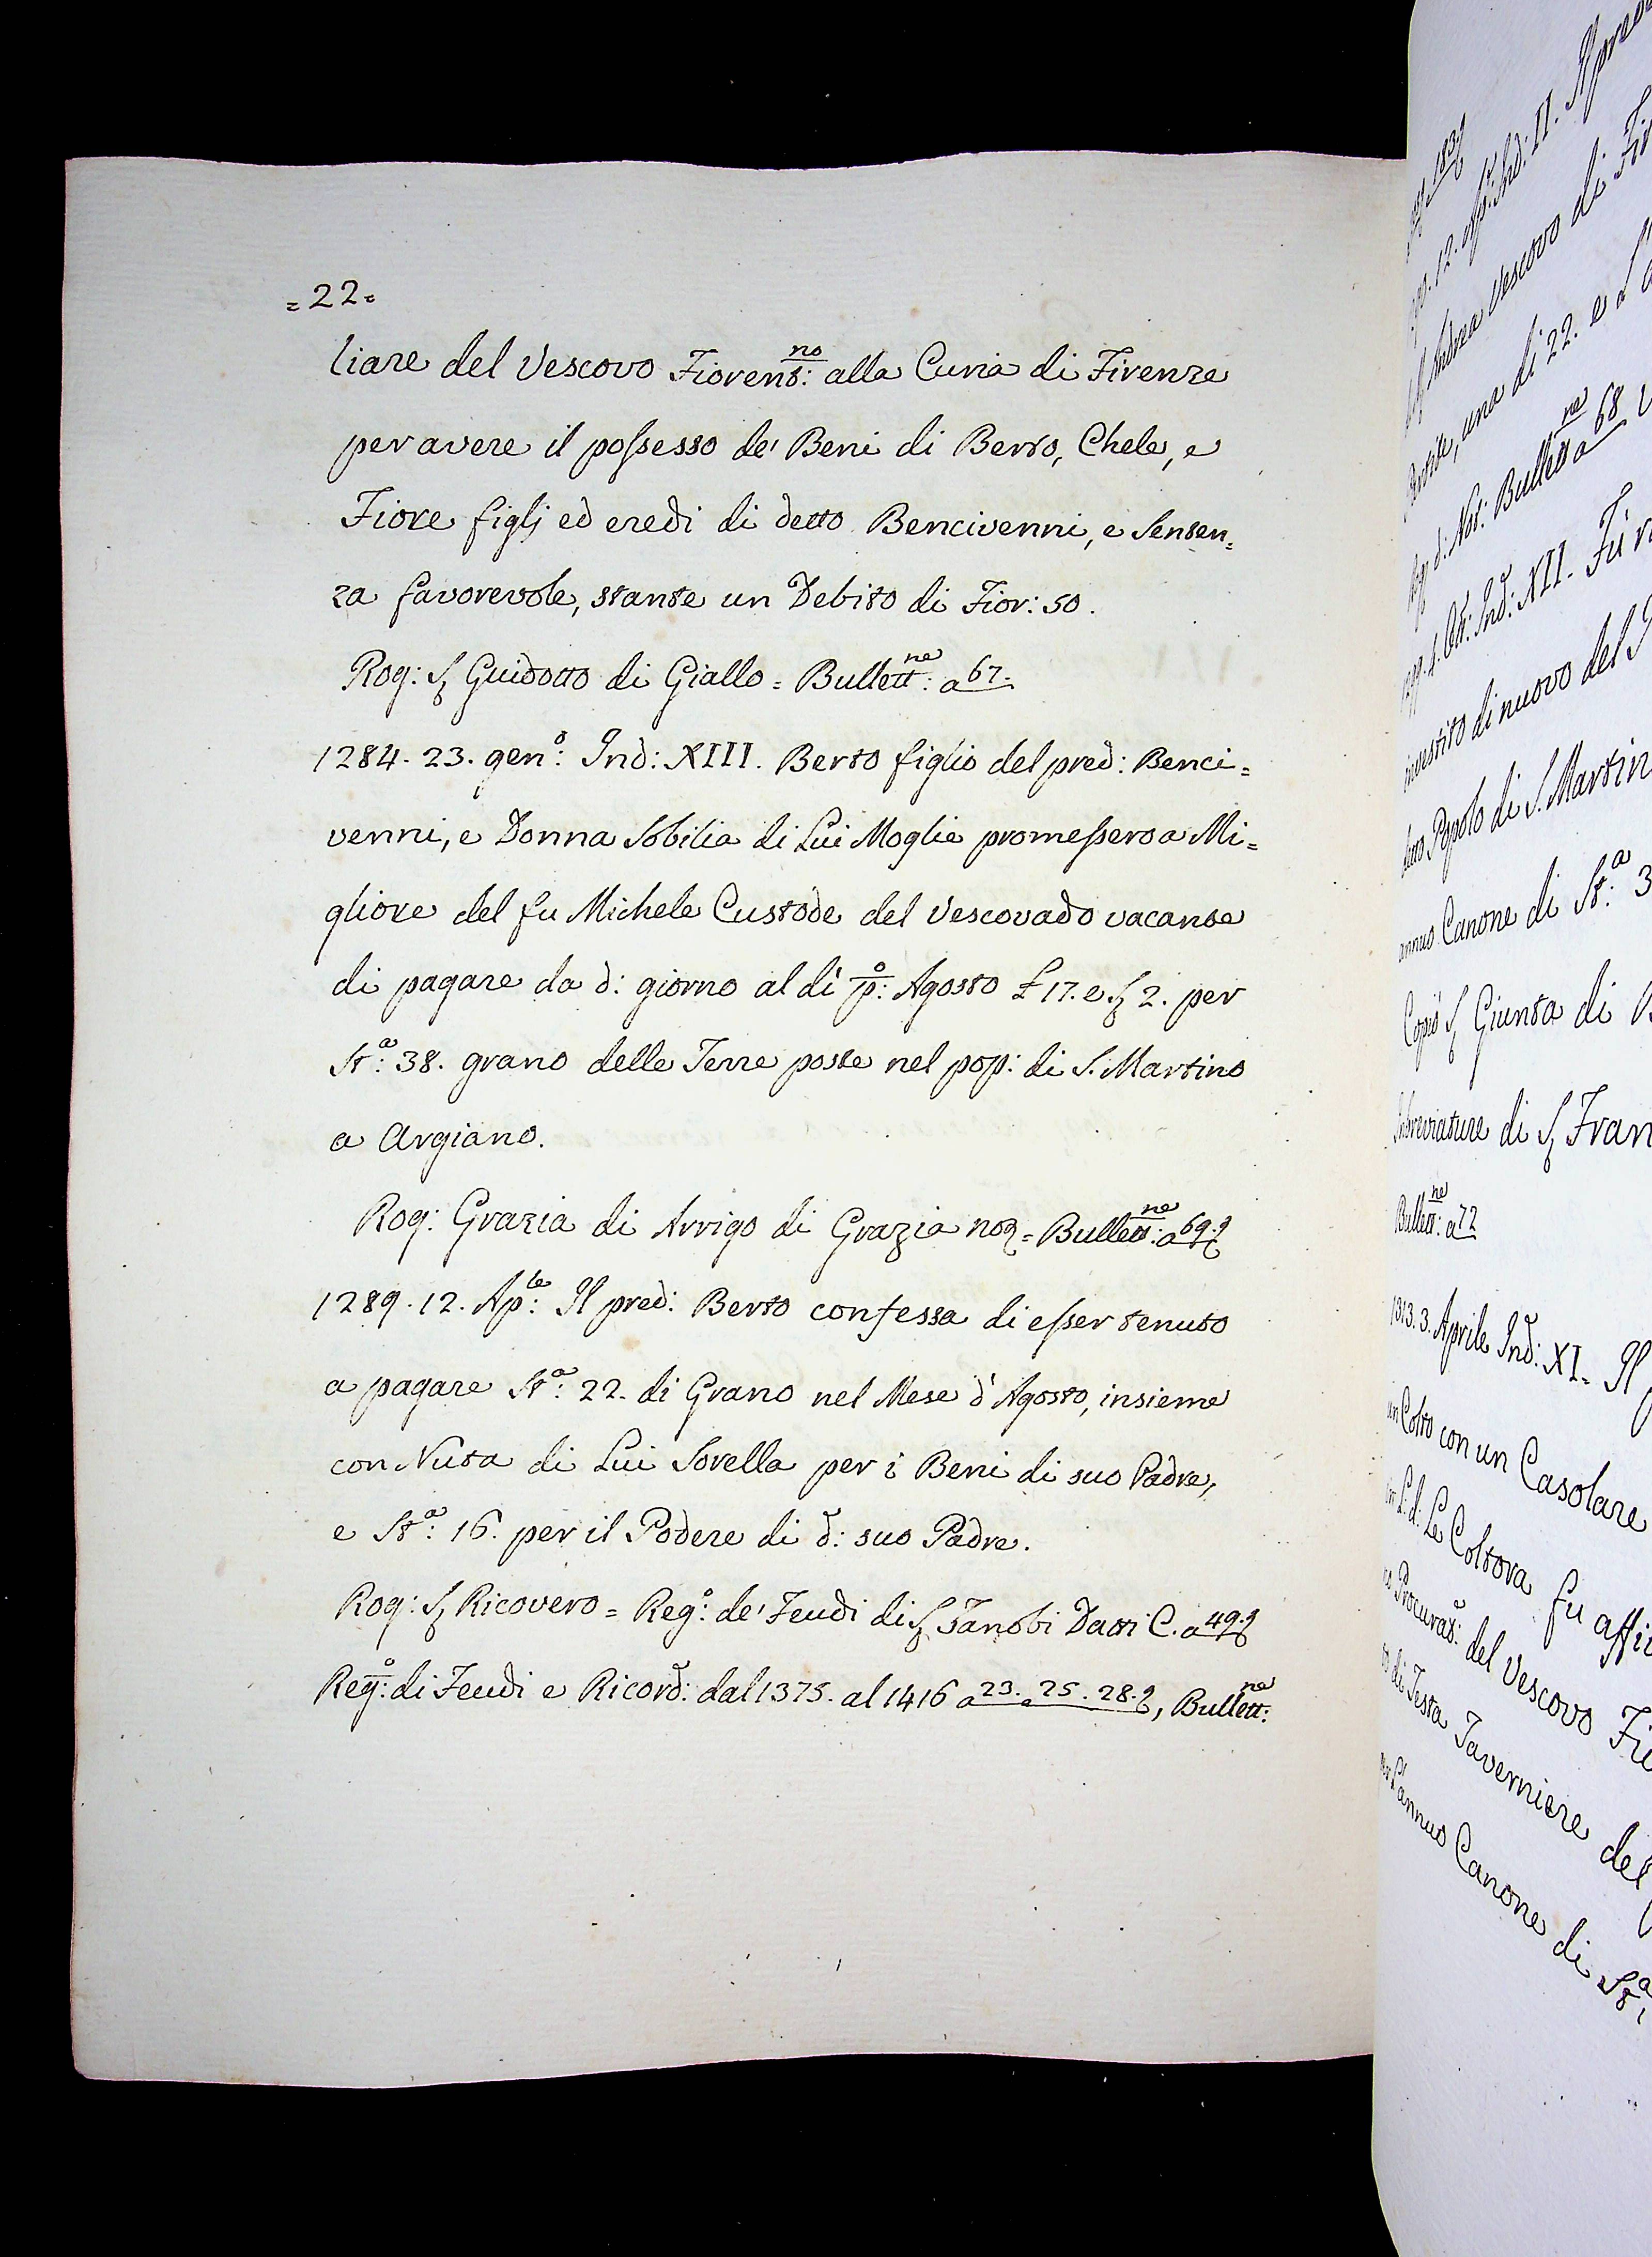 =22=
liare del Vescovo Fiorent:no alla Curia di Firenze
per avere il possesso de' Beni di Berto, Chele, e
Fiore figlj ed eredi di detto Bencivenni, e Senten=
za favorevole, stante un Debito di Fior: 50.
Rog: S. Guidotto di Giallo = Bullett:ne a 67.
1284. 23. gen:o Ind: XIII. Berto figlio del pred: Benci=
venni, e Donna Sobilia di Lui Moglie promessero a Mi=
gliore del fu Michele Custode del Vescovado vacante
di pagare da d: giorno al dì p:o Agosto £ 17. e S 2. per
St:a 38. grano delle Terre poste nel pop: di S. Martino
a Argiano.
Rog: Grazia di Arrigo di Grazia not = Bullett:ne a 69.
1289. 12. Ap:le Il pred: Berto confessa di esser tenuto
a pagare St:a 22. di Grano nel Mese d'Agosto, insieme
con Nuta di Lui Sorella per i Beni di suo Padre,
e St:a 16. per il Podere di d: suo Padre.
Rog: S. Ricovero = Reg:o de' Feudi di S. Zanobi Datti C. a 49.
Reg:o di Feudi e Ricord: dal 1375. al 1416 a 23. 25. 28., Bullett:ne
Andrea Vescovo di
una di 22. e
Not: Bullett:ne a 68
Ind: XII. Fu
investito di nuovo del
Popolo di S. Martin
annuo Canone di St:a 3
Copiò S. Giunta di
di S. Fran
Bullett:ne a 72
1313. 3. Aprile Ind: XI. Il
un Colto con un Casolare
Le Coltora fu affi
Procurat: del Vescovo Fi
di Testa Taverniere del
annuo Canone di St:a